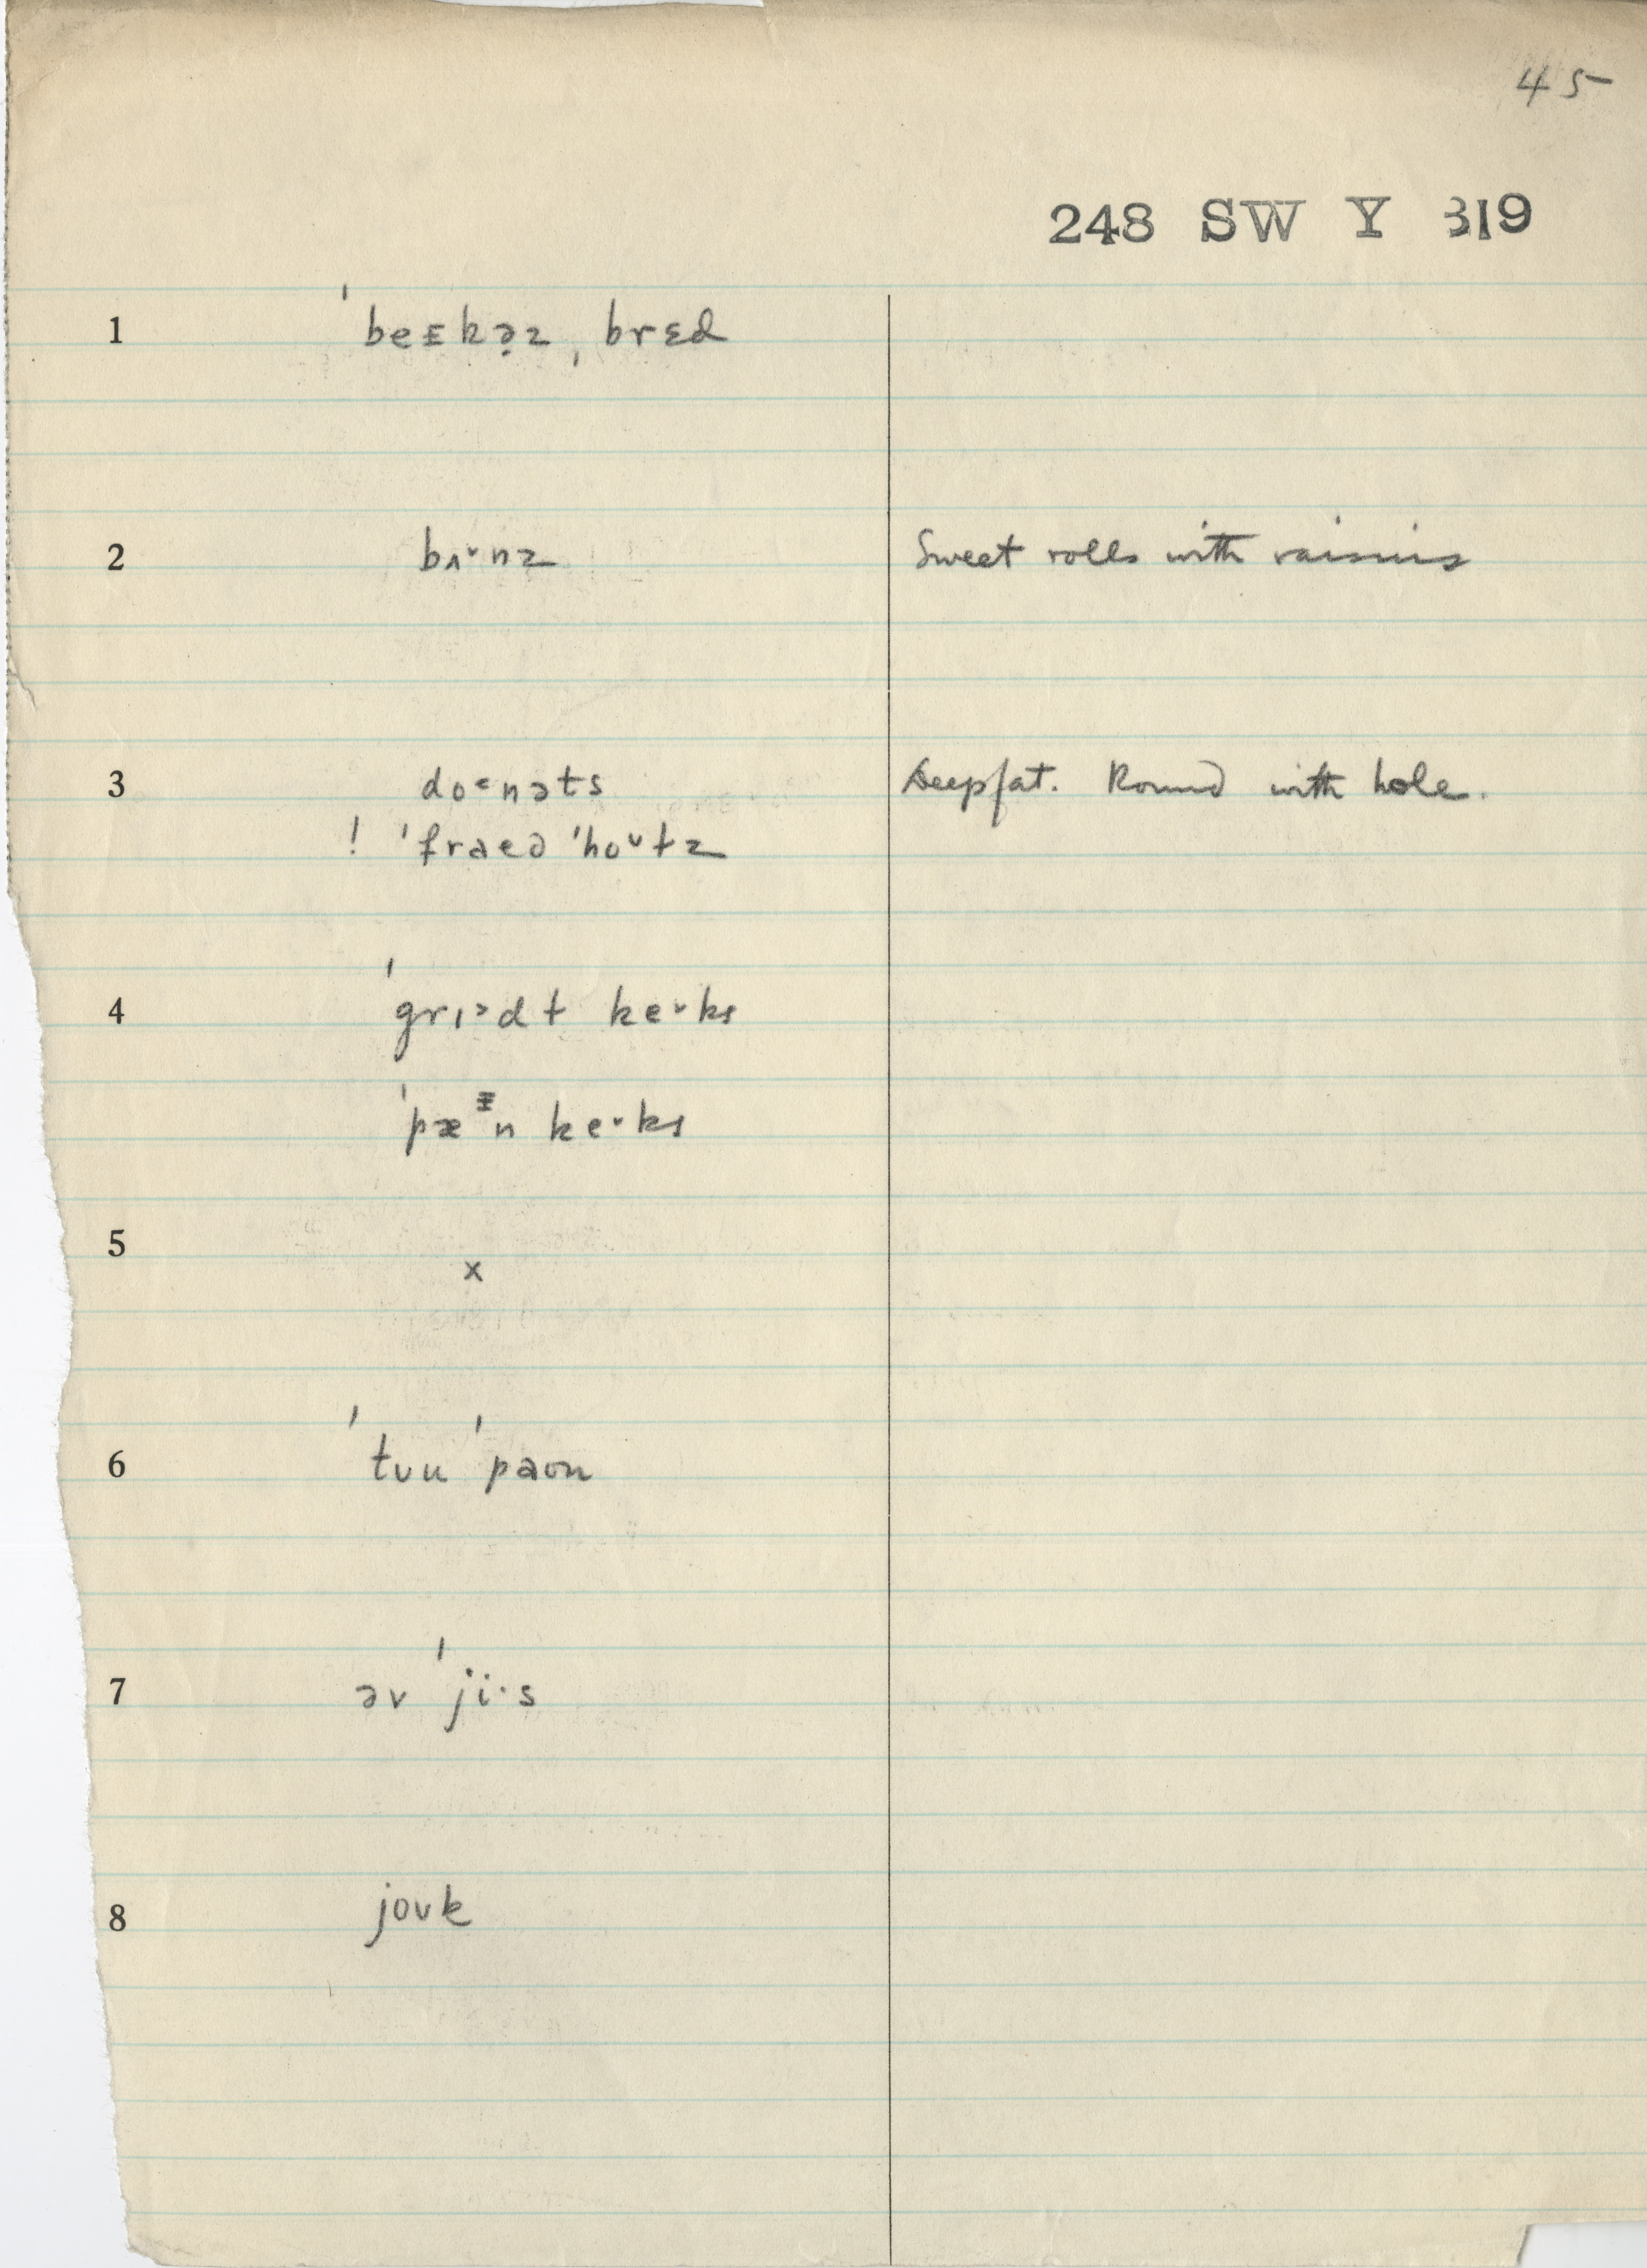 45
248 SW Y 319
1 ˈbeɪkə̣z ˌbrɛd
2 bʌ˅nz Sweet rolls with raisins
3 do˂nəts Deepfat. Round with hole.
! ˈfraed ˈho˅ɫz
4 ˈgrɪ˃dɫ ke˅ks
ˈpæᵻn ke˅ks
5 x
6 ˈtuu ˈpaʊn
7 əv ˈji·s
8 joʊk